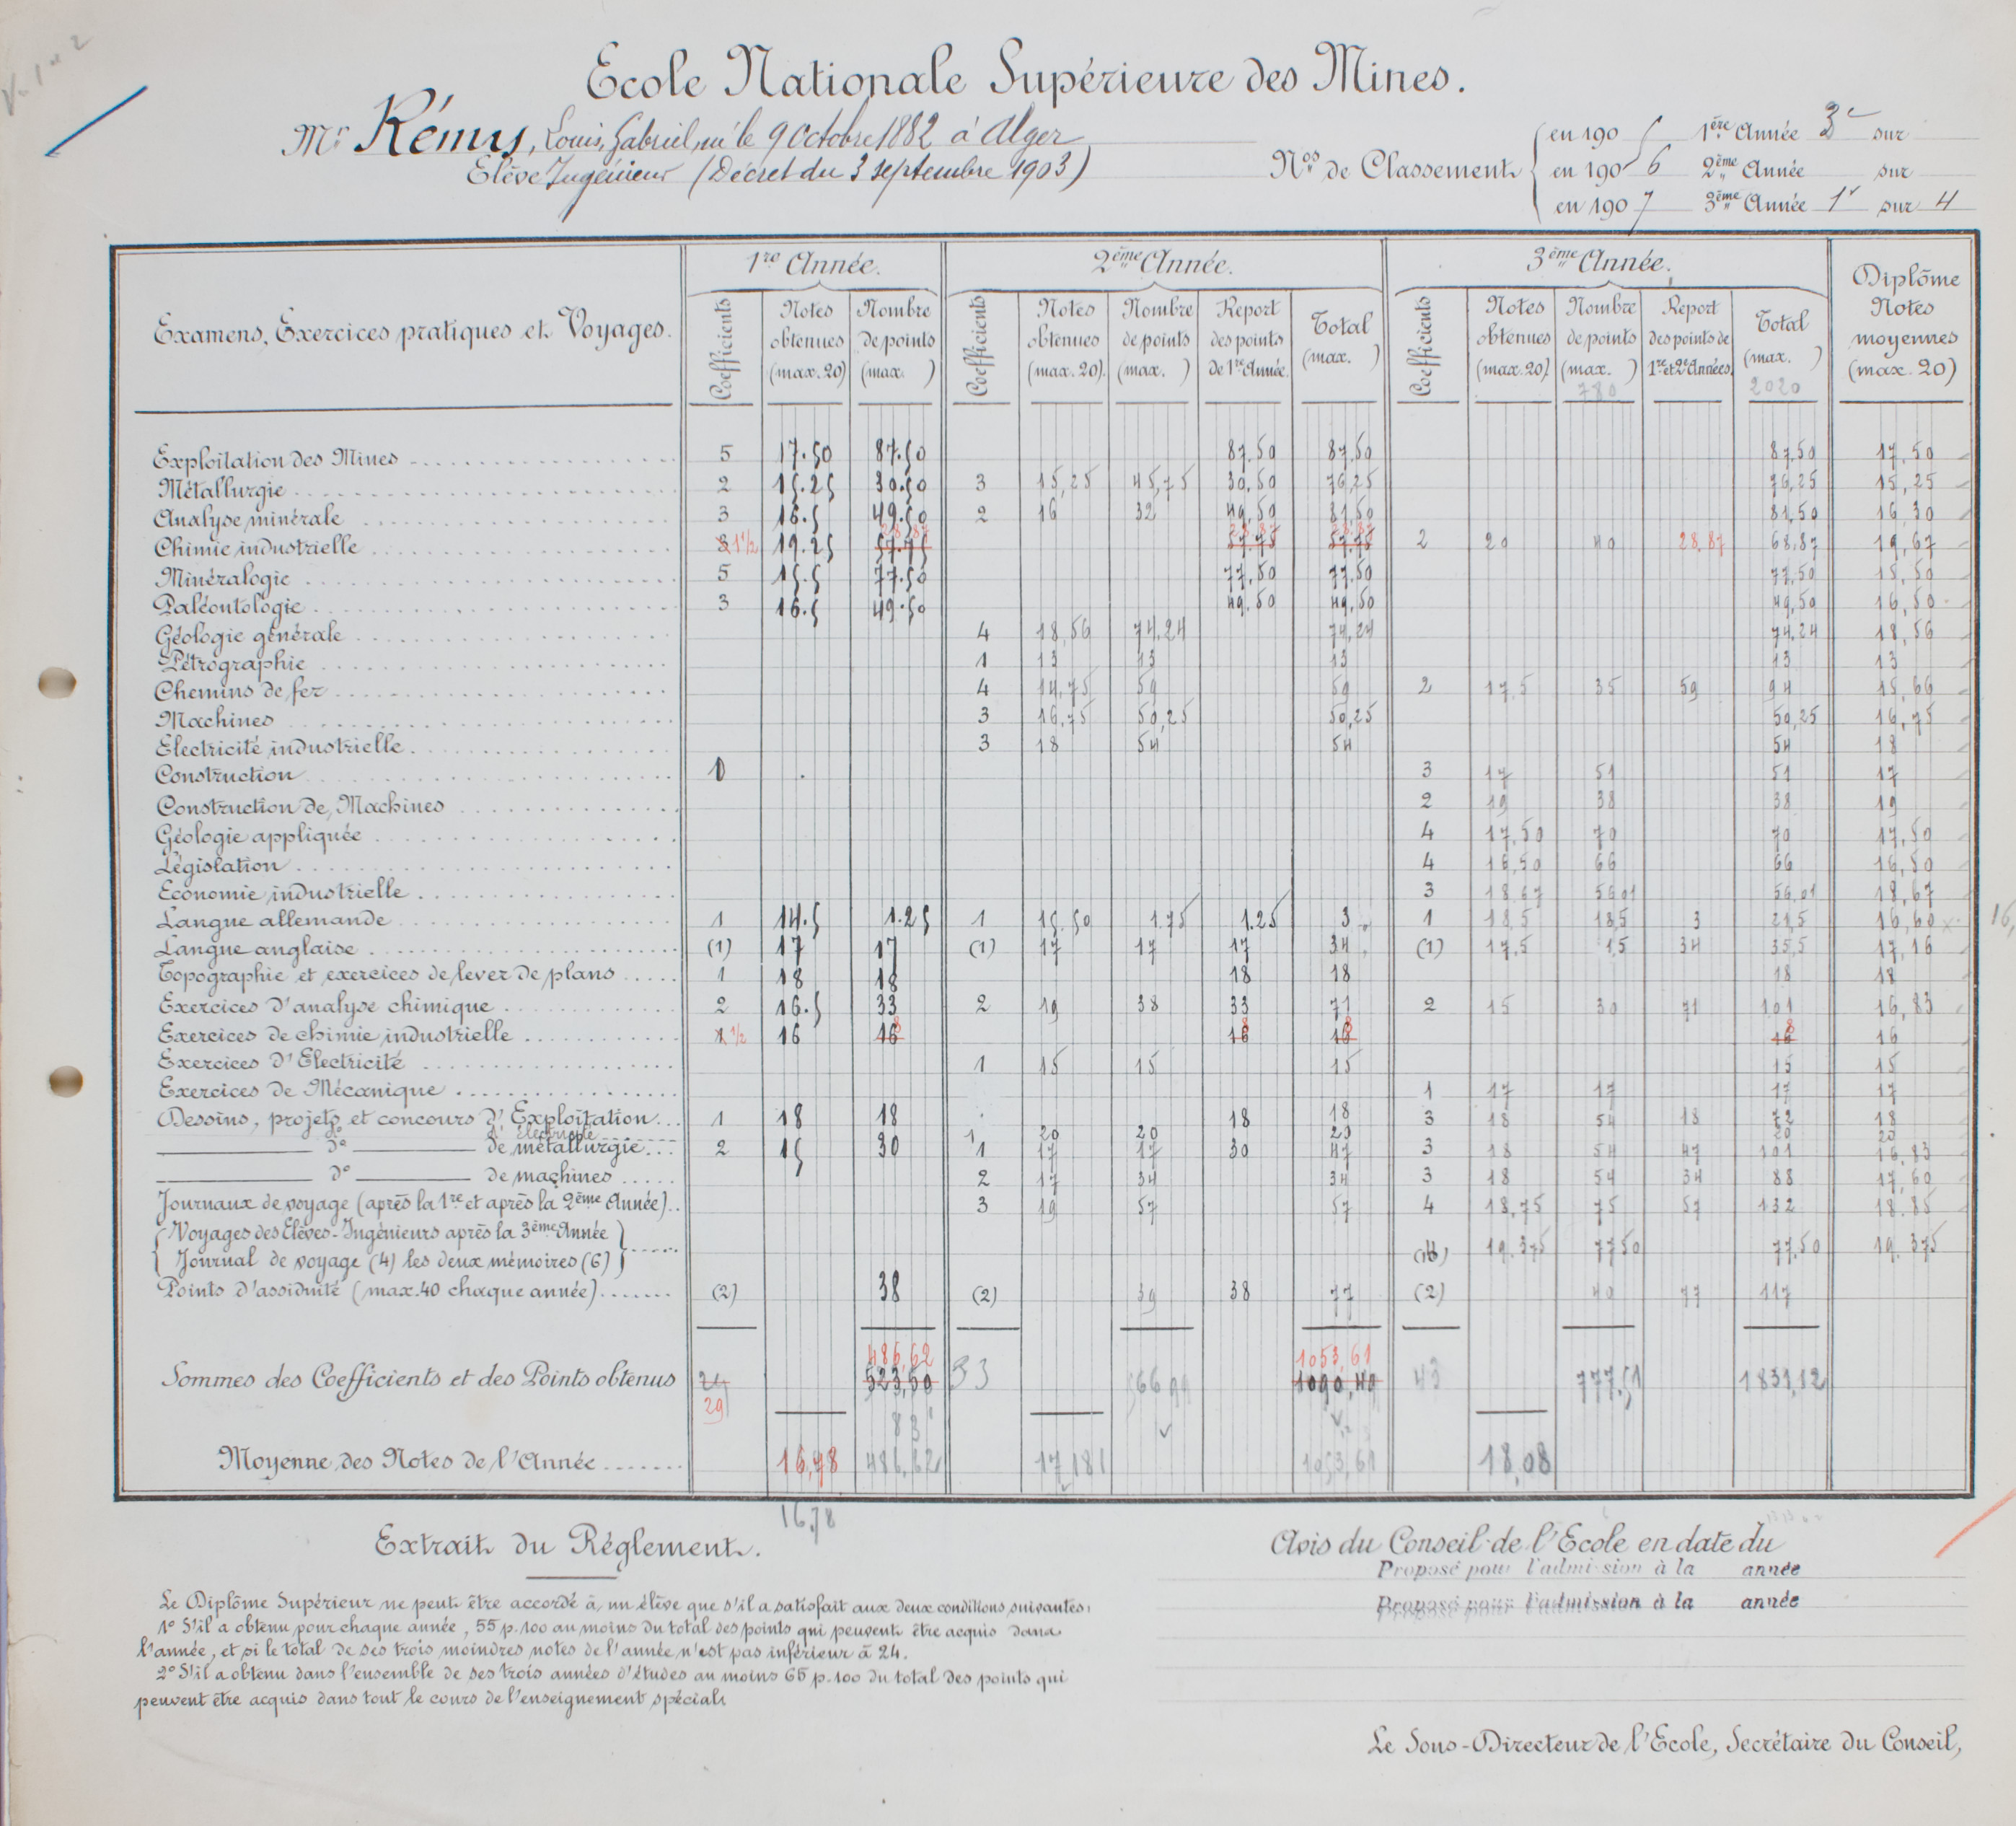 Ecole Nationale Supérieure des Mines.
Mr Rémy, Louis, Gabriel, né le 9 Octobre 1882 à Alger
Elève Ingénieur (Décret du 3 septembre 1903)
Nos de Classement
en 190 5 1ère Année 3e sur
en 190 6 2ème Année sur
en 190 7 3ème Année 1r sur 4
Examens, Exercices pratiques et Voyages. 1re Année. 2ème Année. 3ème Année. Diplôme Notes moyennes (max. 20)
Coefficients Notes obtenues (max. 20) Nombre de points (max. ) Coefficients Notes obtenues (max. 20). Nombre de points (max. ) Report des points de 1re Année. Total (max. ) Coefficients Notes obtenues (max. 20) Nombre de points (max. 780) Report des points de 1re et 2e Années. Total (max. 2020)
Exploitation des Mines 5 17.50 87.50 87,50 87,50 87,50 17,50
Métallurgie 2 15.25 30.50 3 15,25 45,75 30,50 76,25 76,25 15,25
Analyse minérale 3 16.5 49.50 2 16 32 49,50 81,50 81,50 16,30
Chimie industrielle 3 1 1/2 19.25 57.75 28,87 57.75 28,87 57.75 28,87 2 20 40 28,87 68,87 19,67
Minéralogie 5 15.5 77.50 77,50 77,50 77,50 15,50
Paléontologie 3 16.5 49.50 49,50 49,50 49,50 16,50
Géologie générale 4 18,56 74,24 74,24 74,24 18,56
Pétrographie 1 13 13 13 13 13
Chemins de fer 4 14,75 59 59 2 17,5 35 59 94 15,66
Machines 3 16,75 50,25 50,25 50,25 16,75
Electricité industrielle 3 18 54 54 54 18
Construction 1 3 17 51 51 17
Construction de Machines 2 19 38 38 19
Géologie appliquée 4 17,50 70 70 17,50
Législation 4 16,50 66 66 16,50
Economie industrielle 3 18,67 56,01 56,01 18,67
Langue allemande 1 14.5 1.25 1 15,50 1.75 1.25 3 1 18,5 18,5 3 21,5 16,60 x 16,
Langue anglaise (1) 17 17 (1) 17 17 17 34 (1) 17,5 1,5 34 35,5 17,16
Topographie et exercices de lever de plans 1 18 18 18 18 18 18
Exercices d'analyse chimique 2 16.5 33 2 19 38 33 71 2 15 30 71 101 16,83
Exercices de chimie industrielle 1 1/2 16 16 8 16 8 16 8 16 8 16
Exercices d'Electricité 1 15 15 15 15 15
Exercices de Mécanique 1 17 17 17 17
Dessins, projets et concours d'Exploitation 1 18 18 18 18 3 18 54 18 72 18
d'Electricité 1 20 20 20 20 20
do de métallurgie 2 15 30 1 17 17 30 47 3 18 54 47 101 16,83
do de machines 2 17 34 34 3 18 54 34 88 17,60
Journaux de voyage (après la 1re et après la 2ème Année) 3 19 57 57 4 18,75 75 57 132 18,85
Voyages des Elèves-Ingénieurs après la 3ème Année
Journal de voyage (4) les deux mémoires (6) 19,375 77,50 77,50 19,375
Points d'assiduité (max. 40 chaque année) (2) 38 (2) 39 38 77 (2) 40 77 117
486,62 1053,61
Sommes des Coefficients et des Points obtenus 523,50 33 566,99 1090,49 43 777,51 1831,12
29
Moyenne des Notes de l'Année 16,78 486,62 17,181 1053,61 18,08
16,78
Extrait du Règlement.
Le Diplôme Supérieur ne peut être accordé à un élève que s'il a satisfait aux deux conditions suivantes:
1o S'il a obtenu pour chaque année, 55 p. 100 au moins du total des points qui peuvent être acquis dans
l'année, et si le total de ses trois moindres notes de l'année n'est pas inférieur à 24.
2o S'il a obtenu dans l'ensemble de ses trois années d'études au moins 65 p. 100 du total des points qui
peuvent être acquis dans tout le cours de l'enseignement spécial.
Avis du Conseil de l'Ecole en date du
Proposé pour l'admission à la année
Proposé pour l'admission à la année
Le Sous-Directeur de l'Ecole, Secrétaire du Conseil,